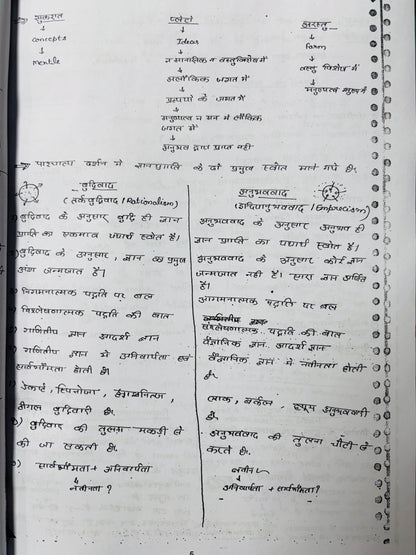 सुकरात
↓
Concepts
↓
Mentle
प्लेटो
↓
Ideas
↓
न मानसिक न वस्तुविशेष में
↓
अलौकिक जगत में
↓
प्रत्ययों के जगत में
↓
मनुष्यत्व न मन में लौकिक
जगत में
↓
अनुभव द्वारा प्राप्त नहीं
अरस्तु
↓
Form
↓
वस्तु विशेष में
↓
मनुष्यत्व मनुष्य में
पाश्चात्य दर्शन में ज्ञानप्राप्ति के दो प्रमुख स्त्रोत माने गये है।
बुद्धिवाद
(तर्कबुद्धिवाद / Rationalism)
बुद्धिवाद के अनुसार बुद्धि ही ज्ञान
प्राप्ति का एकमात्र यथार्थ स्त्रोत है।
बुद्धिवाद के अनुसार, ज्ञान का प्रमुख
अंश जन्मजात है।
निगमनात्मक पद्धति पर बल
विश्लेषणात्मक पद्धति की बात
गणितीय ज्ञान आदर्श ज्ञान
गणितीय ज्ञान में अनिवार्यता एवं
सार्वभौमता होती है।
डेकार्ट, स्पिनोजा, लाइबनित्ज,
हीगल बुद्धिवादी है।
बुद्धिवाद की तुलना मकड़ी से
की जा सकती है।
सार्वभौमता + अनिवार्यता
↳ नवीनता ?
अनुभववाद
(इन्द्रियानुभववाद / Emprecism)
अनुभववाद के अनुसार अनुभव ही
ज्ञान प्राप्ति का यथार्थ स्त्रोत है।
अनुभववाद के अनुसार कोई ज्ञान
जन्मजात नहीं है। सारा ज्ञान अर्जित
है।
आगमनात्मक पद्धति पर बल
संश्लेषणात्मक पद्धति की बात
वैज्ञानिक ज्ञान आदर्श ज्ञान
वैज्ञानिक ज्ञान में नवीनता होती
है।
लॉक, बर्कले, ह्यूम अनुभववादी
है।
अनुभववाद की तुलना चींटी से
करते है।
नवीन
अनिवार्यता + सार्वभौमता ?